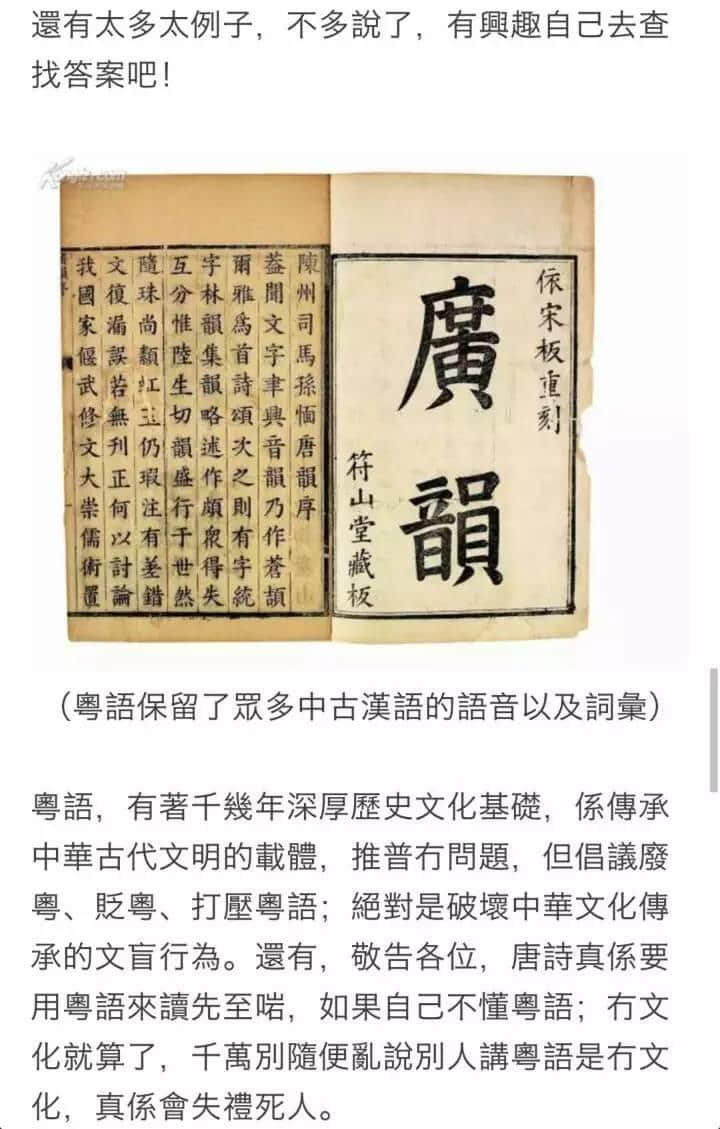 還有太多太例子，不多說了，有興趣自己去查
找答案吧！
依宋板重刻
廣韻
符山堂藏板
陳州司馬孫愐唐韻序
蓋聞文字聿興音韻乃作蒼頡
爾雅為首詩頌次之則有字統
字林韻集韻略述作頗衆得失
互分惟陸生切韻盛行于世然
隨珠尚纇虹玉仍瑕注有差錯
文復漏誤若無刊正何以討論
我國家偃武修文大崇儒術置
（粵語保留了眾多中古漢語的語音以及詞彙）
粵語，有著千幾年深厚歷史文化基礎，係傳承
中華古代文明的載體，推普冇問題，但倡議廢
粵、貶粵、打壓粵語；絕對是破壞中華文化傳
承的文盲行為。還有，敬告各位，唐詩真係要
用粵語來讀先至啱，如果自己不懂粵語；冇文
化就算了，千萬別隨便亂說別人講粵語是冇文
化，真係會失禮死人。